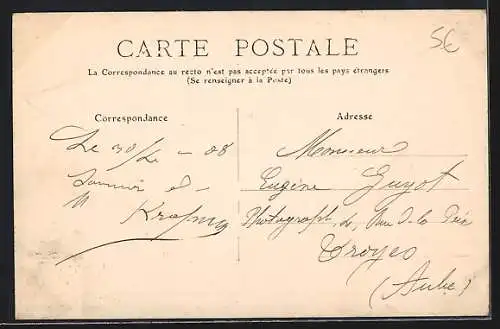 CARTE POSTALE
La Correspondance au recto n'est pas acceptée par tous les pays étrangers
(Se renseigner à la Poste)
Correspondance
Adresse
Le 30/ - 08
Souvenir d
Monsieur
Eugène Guyot
Photograph, Rue de la
Troyes
(Aube)